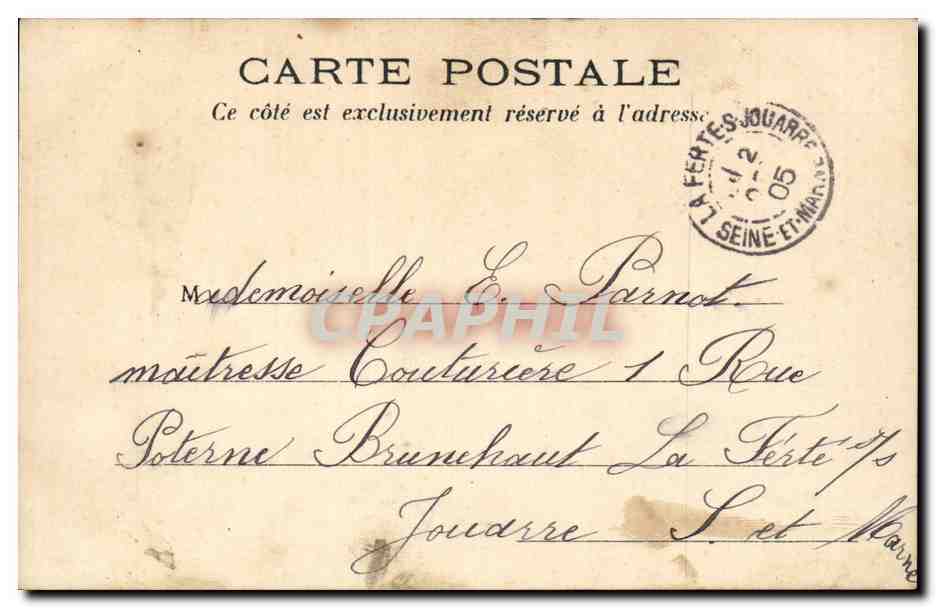 CARTE POSTALE
Ce côté est exclusivement réservé à l'adresse
LA FERTE-S-JOUARRE
2
05
SEINE-ET-MARNE
Mademoiselle E. Parnot.
CPAPHIL
maîtresse Couturière 1 Rue
Poterne Brunehaut La Ferté s/s
Jouarre S. et Marne